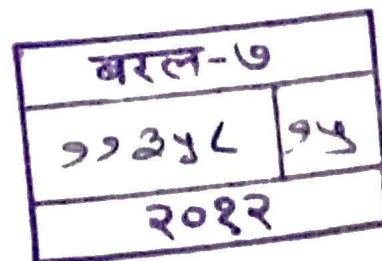 बरल-७
११३५८ १५
२०१२